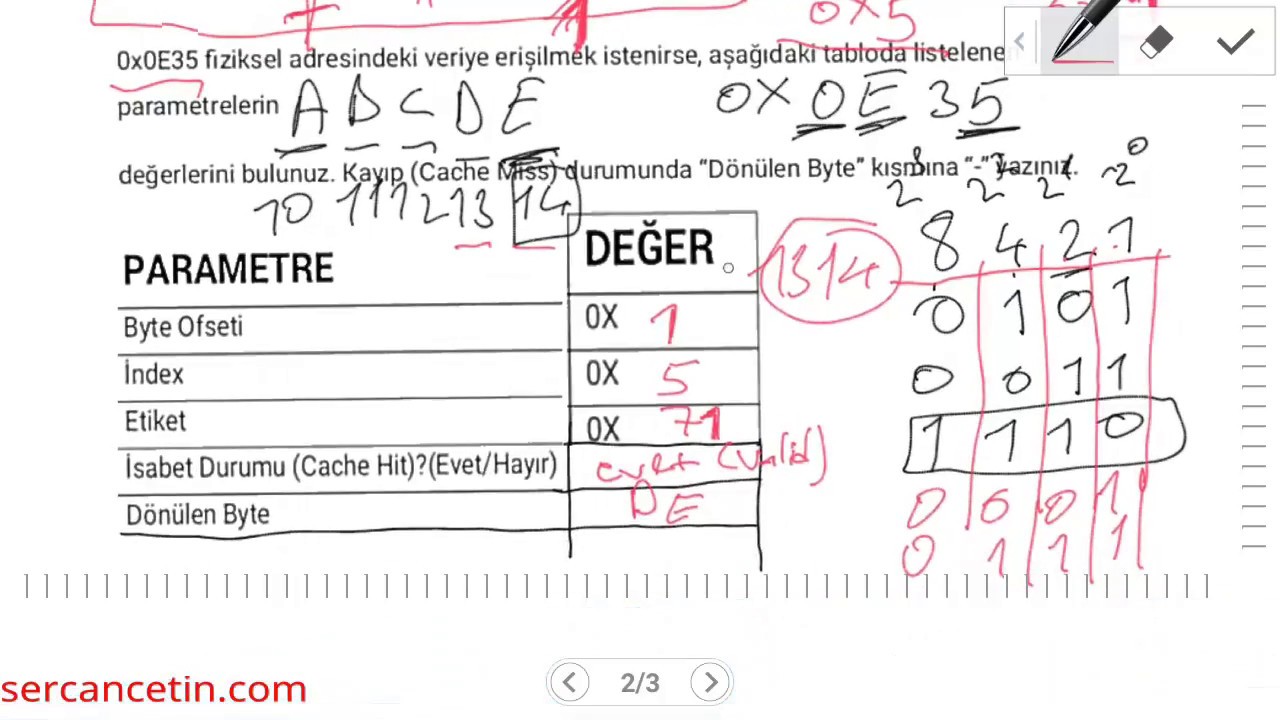 0X5
0x0E35 fiziksel adresindeki veriye erişilmek istenirse, aşağıdaki tabloda listelene
parametrelerin
A B C D E
0X 0E 35
değerlerini bulunuz. Kayıp (Cache Miss) durumunda "Dönülen Byte" kısmına "-" yazınız.
10 11 12 13 14
2 2 2 2⁰
8 4 2 1
PARAMETRE DEĞER
1314
0 1 0 1
Byte Ofseti 0X 1
İndex 0X 5
0 0 1 1
Etiket 0X 71
1 1 1 0
İsabet Durumu (Cache Hit)?(Evet/Hayır) evet (Valid)
Dönülen Byte DE
0 0 0 1
0 1 1 1
2/3
sercancetin.com